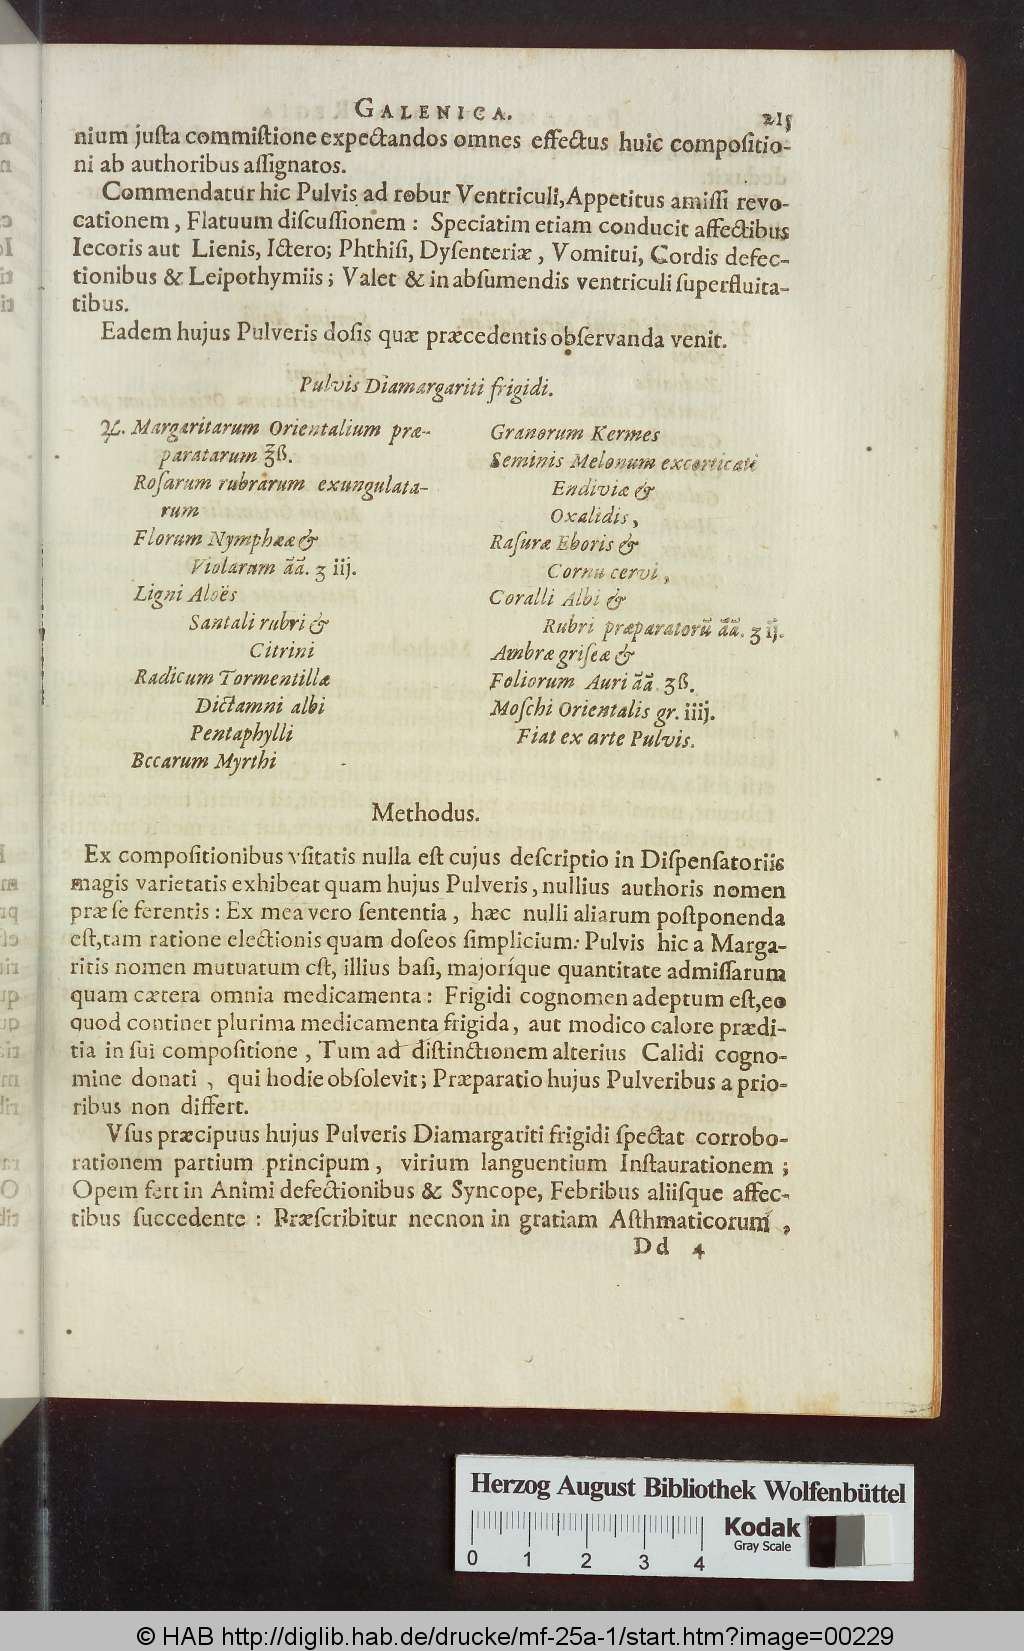 GALENICA. 215
nium juſta commiſtione expectandos omnes effectus huic compoſitio-
ni ab authoribus aſſignatos.
Commendatur hic Pulvis ad robur Ventriculi, Appetitus amiſſi revo-
cationem, Flatuum diſcuſſionem: Speciatim etiam conducit affectibus
Iecoris aut Lienis, Ictero; Phthiſi, Dyſenteriæ, Vomitui, Cordis defec-
tionibus & Leipothymiis; Valet & in abſumendis ventriculi ſuperfluita-
tibus.
Eadem hujus Pulveris doſis quæ præcedentis obſervanda venit.
Pulvis Diamargariti frigidi.
♃. Margaritarum Orientalium præ-
paratarum ℥ß.
Roſarum rubrarum exungulata-
rum
Florum Nymphææ &
Violarum ãã. ʒ iij.
Ligni Aloës
Santali rubri &
Citrini
Radicum Tormentillæ
Dictamni albi
Pentaphylli
Bccarum Myrthi
Granorum Kermes
Seminis Melonum excorticati
Endiviæ &
Oxalidis,
Raſuræ Eboris &
Cornu cervi,
Coralli Albi &
Rubri præparatorũ ãã. ʒ ij.
Ambræ griſeæ &
Foliorum Auri ãã. ʒß.
Moſchi Orientalis gr. iiij.
Fiat ex arte Pulvis.
Methodus.
Ex compoſitionibus vſitatis nulla eſt cujus deſcriptio in Diſpenſatoriis
magis varietatis exhibeat quam hujus Pulveris, nullius authoris nomen
præ ſe ferentis: Ex mea vero ſententia, hæc nulli aliarum poſtponenda
eſt, tam ratione electionis quam doſeos ſimplicium: Pulvis hic a Marga-
ritis nomen mutuatum eſt, illius baſi, majoríque quantitate admiſſarum
quam cætera omnia medicamenta: Frigidi cognomen adeptum eſt, eo
quod continet plurima medicamenta frigida, aut modico calore prædi-
tia in ſui compoſitione, Tum ad diſtinctionem alterius Calidi cogno-
mine donati, qui hodie obſolevit; Præparatio hujus Pulveribus a prio-
ribus non differt.
Vſus præcipuus hujus Pulveris Diamargariti frigidi ſpectat corrobo-
rationem partium principum, virium languentium Inſtaurationem;
Opem fert in Animi defectionibus & Syncope, Febribus aliiſque affec-
tibus ſuccedente: Præſcribitur necnon in gratiam Aſthmaticorum,
Dd 4
Herzog August Bibliothek Wolfenbüttel
Kodak
Gray Scale
0 1 2 3 4
© HAB http://diglib.hab.de/drucke/mf-25a-1/start.htm?image=00229